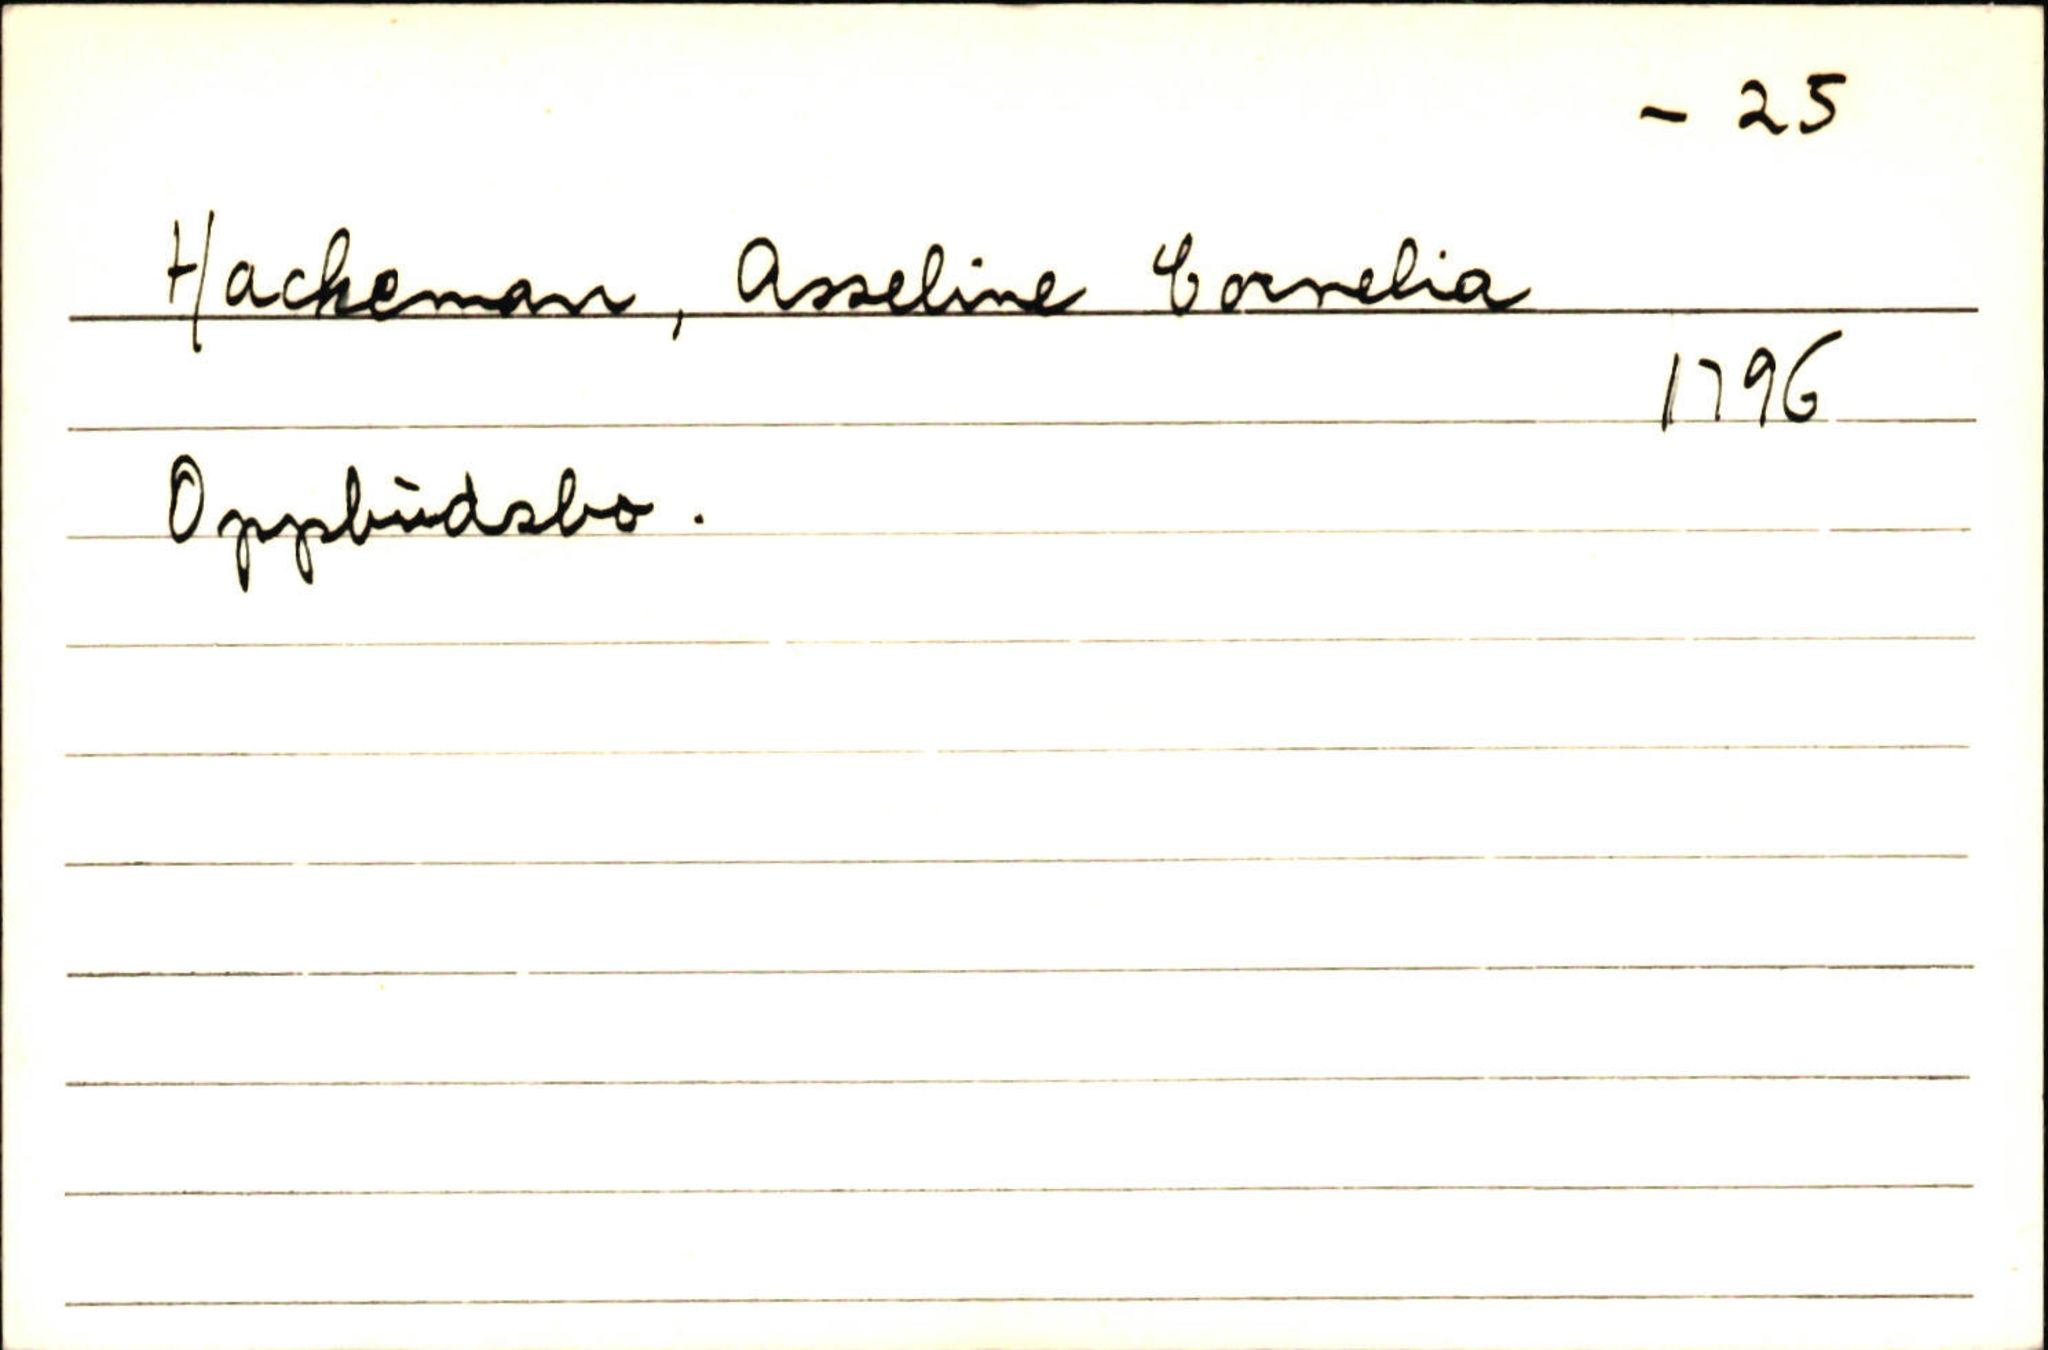 - 25
Hackeman, Asseline Cornelia
1796
Oppbudsbo.